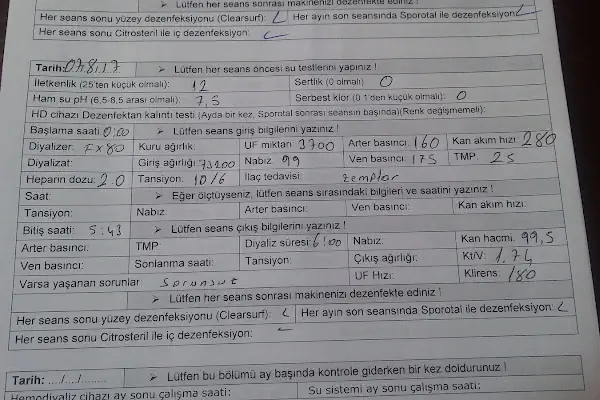 Lütfen her seans sonrası makinenizi dezenfekte ediniz !
Her seans sonu yüzey dezenfeksiyonu (Clearsurf): Her ayın son seansında Sporotal ile dezenfeksiyon:
Her seans sonu Citrosteril ile iç dezenfeksiyon:
Tarih: ➢ Lütfen her seans öncesi su testlerini yapınız !
İletkenlik (25'ten küçük olmalı): 12 Sertlik (0 olmalı) 0
Ham su pH (6,5-8,5 arası olmalı): 7,5 Serbest klor (0.1'den küçük olmalı): 0
HD cihazı Dezenfektan kalıntı testi (Ayda bir kez, Sporotal sonrası seansın başında)(Renk değişmemeli):
Başlama saati ➢ Lütfen seans giriş bilgilerini yazınız !
Diyalizer: FX80 Kuru ağırlık: UF miktarı 3700 Arter basıncı: 160 Kan akım hızı 280
Diyalizat: Giriş ağırlığı 73200 Nabız 99 Ven basıncı: 175 TMP: 25
Heparin dozu: 2.0 Tansiyon: 10/6 İlaç tedavisi: zemplar
Saat: ➢ Eğer ölçtüyseniz, lütfen seans sırasındaki bilgileri ve saatini yazınız !
Tansiyon: Nabız: Arter basıncı: Ven basıncı: Kan akım hızı:
Bitiş saati: 5:43 ➢ Lütfen seans çıkış bilgilerini yazınız !
Arter basıncı: TMP: Diyaliz süresi: 6:00 Nabız: Kan hacmi: 99,5
Ven basıncı: Sonlanma saati: Tansiyon: Çıkış ağırlığı: Kt/V: 1,74
Varsa yaşanan sorunlar Sorunsuz UF Hızı: Klirens: 180
➢ Lütfen her seans sonrası makinenizi dezenfekte ediniz !
Her seans sonu yüzey dezenfeksiyonu (Clearsurf): Her ayın son seansında Sporotal ile dezenfeksiyon:
Her seans sonu Citrosteril ile iç dezenfeksiyon:
Tarih: .../.../........ ➢ Lütfen bu bölümü ay başında kontrole giderken bir kez doldurunuz !
Hemodiyaliz cihazı ay sonu çalışma saati: Su sistemi ay sonu çalışma saati: